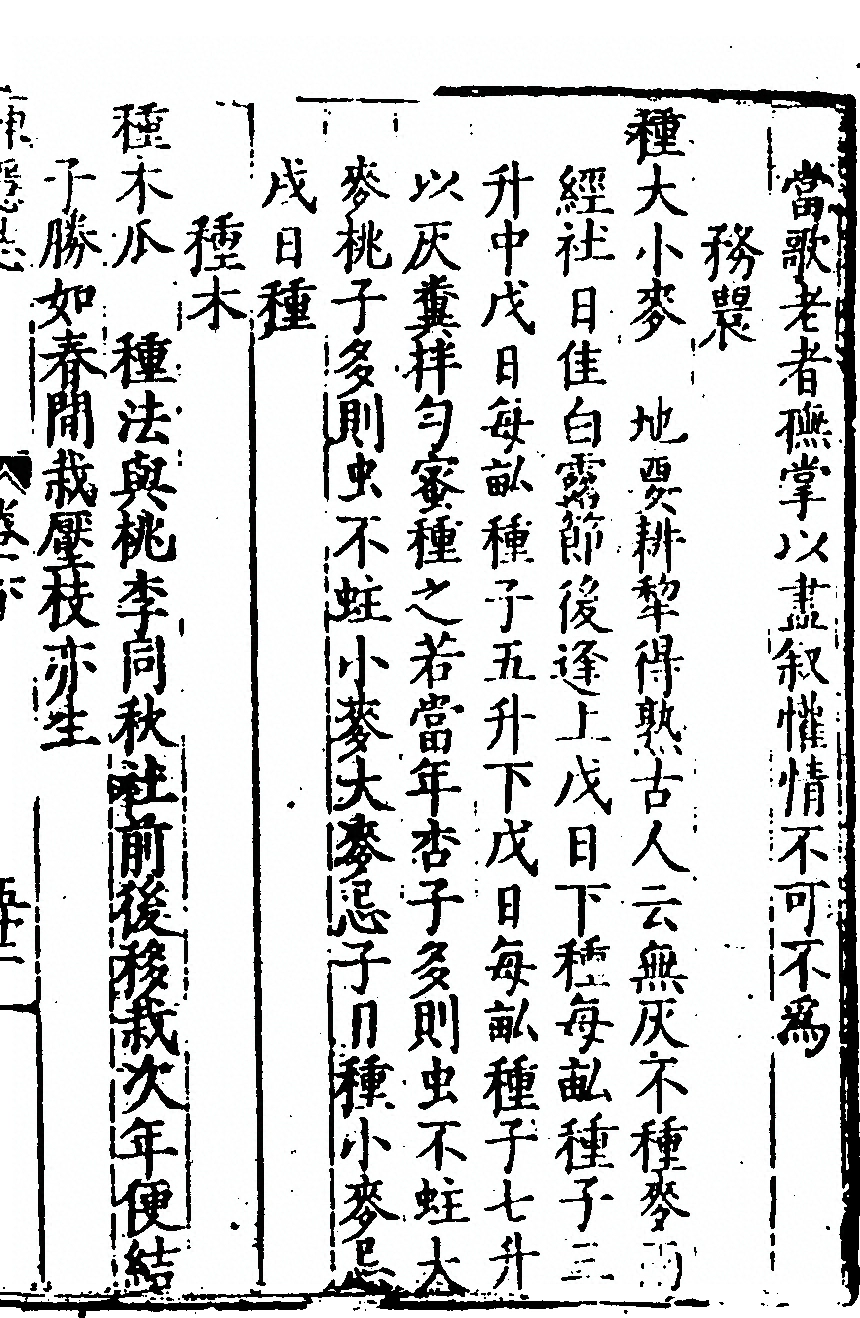 當歌老者撫掌以盡叙懽情不可不為
務農
種大小麥　地要耕犂得熟古人云無灰不種麥兩
經社日佳白露節後逢上戊日下種每畝種子三
升中戊日每畝種子五升下戊日每畝種子七升
以灰糞拌匀蜜種之若當年杏子多則虫不蛀大
麥桃子多則虫不蛀小麥大麥忌子日種小麥忌
戌日種
種木
種木瓜　種法與桃李同秋社前後移栽次年便結
子勝如春間栽壓枝亦生